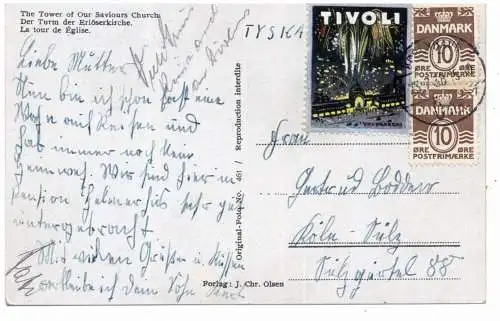 The Tower of Our Saviours Church.
Der Turm der Erlöserkirche.
La tour de Église.
Liebe Mutter
Nun bin ich schon fast eine
Woche auf Reisen und
hab immer noch kein
Heimweh. Wir sind hier in
Pension sehr gut
untergebracht.
Mit vielen Grüßen u. Küssen
verbleibe ich dein Sohn
Original-Foto Nr. 461 / Reproduction interdite
Forlag: J. Chr. Olsen
TYSKLAND
TIVOLI
DANMARK
10
ØRE ØRE
POSTFRIMÆRKE
DANMARK
10
ØRE ØRE
POSTFRIMÆRKE
Frau
Gertrud
Köln-Sülz
Sülzgürtel 88